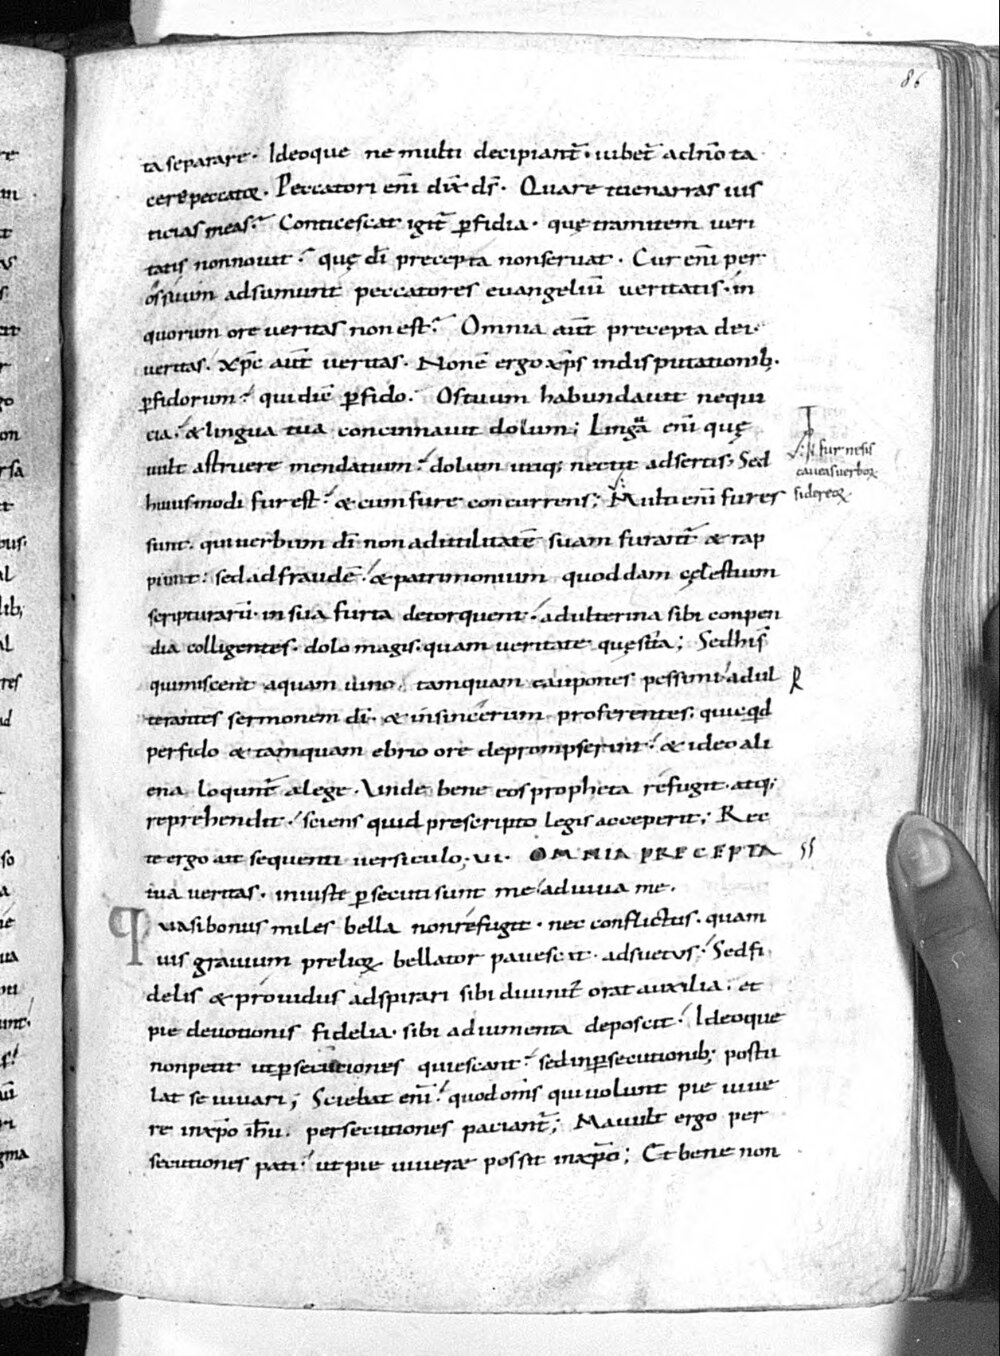 86
ta separare. Ideoque ne multi decipiant̄. iubet̄ ad nō ta
cere peccatoꝝ. Peccatori enī dix̄ d̄s. Quare tu enarras ius
ticias meas? Conticescat igit̄ ꝑfidia. quę tramitem veri
tatis non nouit. quę dī precepta non seruat. Cur enī per
os suum adsumunt peccatores euangeliū ueritatis. in
quorum ore ueritas non est? Omnia aūt precepta dei
ueritas. xp̄c aūt ueritas. Non ē ergo xp̄s in disputationib;.
ꝑfidorum. qui diē ꝑfido. Os tuum habundauit nequi
cia. & lingua tua concinnauit dolum; Lingua enī quę
uult astruere mendatium. dolum utiq; nectit adsertis; Sed
huiusmodi fur est. & cum fure concurrens; Multi enī fures
sunt. qui uerbum dī non ad utilitatē suam furant̄ & rap
piunt: sed ad fraudē. & patrimonium quoddam cęlestium
scripturarū. in sua furta detorquent. adulterina sibi conpen
dia colligentes. dolo magis. quam ueritate quęsita; Sed his
qui miscent aquam uino. tamquam caupones pessimi adul
terantes sermonem dī. & insincerum proferentes. quicqd
perfido & tamquam ebrio ore deprompserint. & ideo ali
ena loqunt̄ a lege. Unde bene eos propheta refugit. atq;
reprehendit. sciens quid prescripto legis acceperit; Rec
te ergo ait sequenti uersiculo; VI. OMNIA PRECEPTA
tua ueritas. iniuste ꝑsecuti sunt me adiuua me.
Quasi bonus miles bella non refugit. nec conflictus. quam
uis grauium prelioꝝ bellator pauescit adsuetus. Sed fi
delis & prouidus adspirari sibi diuinit̄ orat auxilia. et
pie deuotionis fidelia. sibi adiumenta deposcit. Ideoque
non petit ut ꝑsecutiones quiescant. sed in ꝑsecutionib; postu
lat se iuuari; Sciebat enī. quod om̄s qui uolunt pie uiue
re in xp̄o ih̄u. persecutiones paciant̄; Mauult ergo per
secutiones pati. ut pie uiuere possit in xp̄o; Et bene non
fur ne sis
caueas uerboꝝ
sidereoꝝ